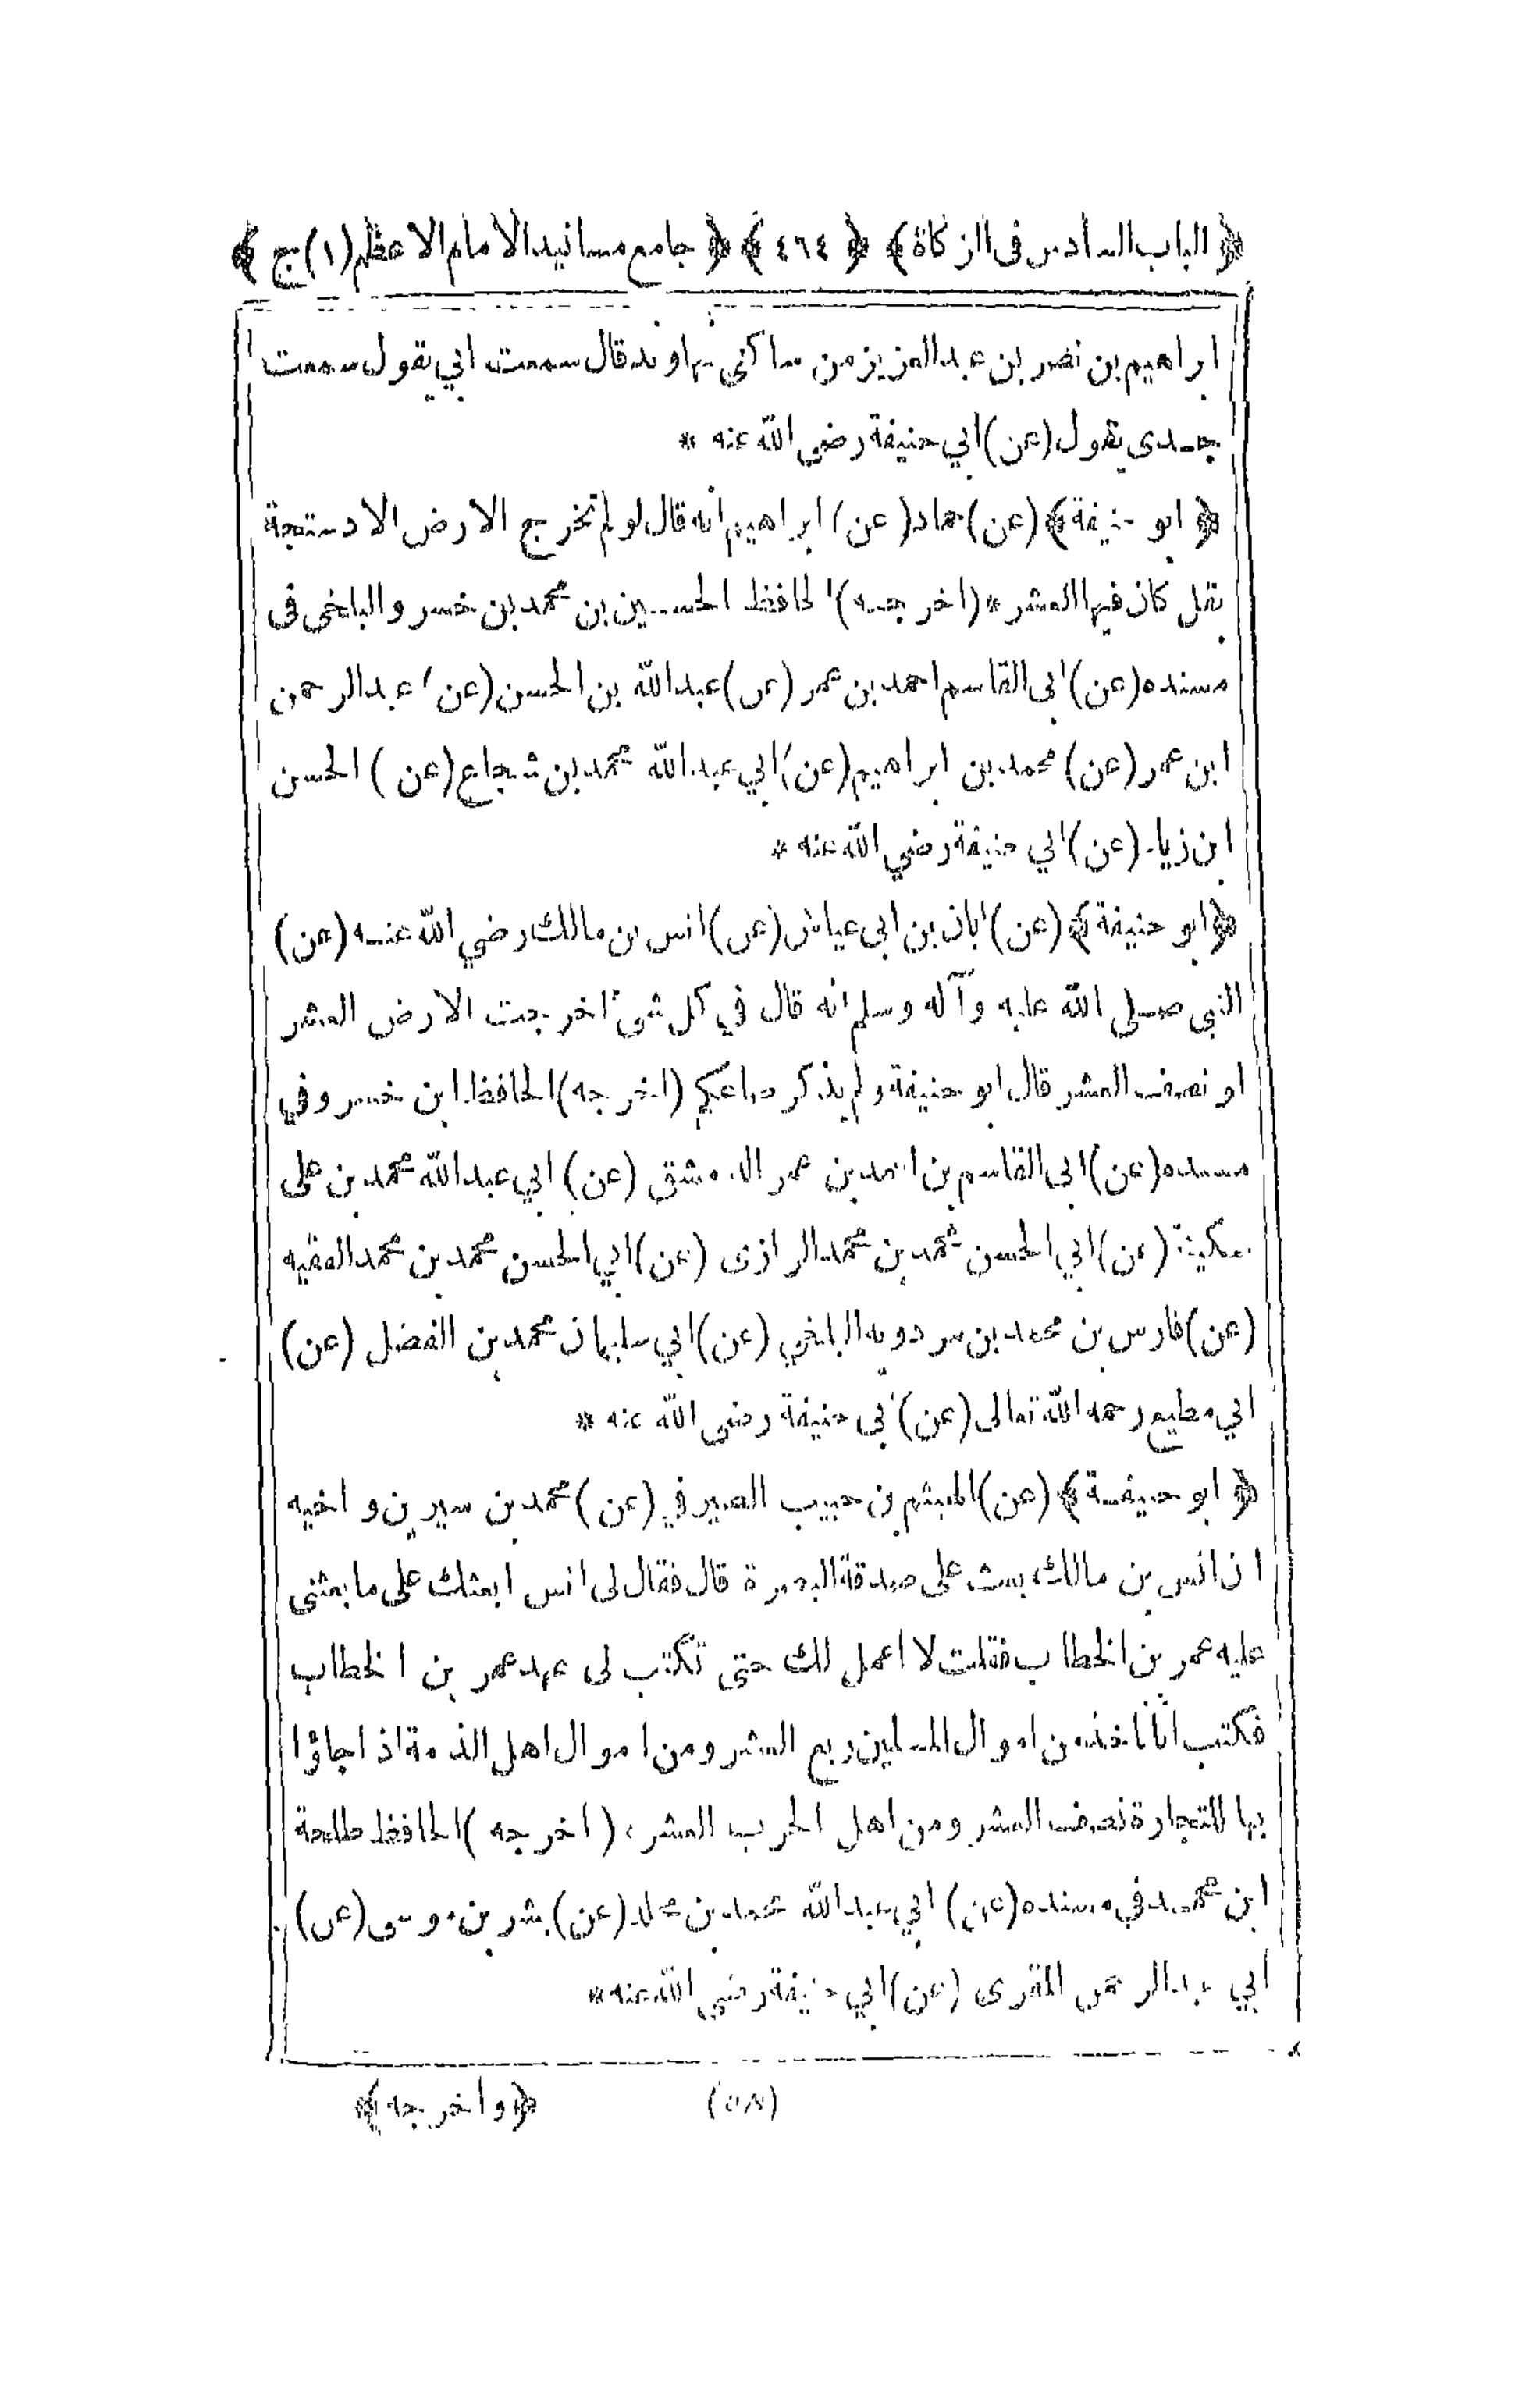 ﴿ الباب السادس في الزكاة ﴾ ﴿ ٤٦٤ ﴾ ﴿ جامع مسانيد الامام الاعظم (١) ج ﴾
ابراهيم بن نصر بن عبد العزيز من ساكني نهاوند قال سمعت ابي يقول سمعت
جدى يقول (عن) ابي حنيفة رضي الله عنه *
﴿ ابو حنيفة ﴾ (عن) حماد (عن) ابراهيم انه قال لو لم تخرج الارض الا دستجة
بقل كان فيها العشر * (اخرجه) الحافظ الحسين بن محمد بن خسرو البلخى فى
مسنده (عن) ابى القاسم احمد بن عمر (عن) عبد الله بن الحسن (عن) عبد الرحمن
ابن عمر (عن) محمد بن ابراهيم (عن) ابي عبد الله محمد بن شجاع (عن) الحسن
ابن زياد (عن) ابي حنيفة رضي الله عنه *
﴿ ابو حنيفة ﴾ (عن) ابان بن ابى عياش (عن) انس بن مالك رضي الله عنه (عن)
النبى صلى الله عليه وآله وسلم انه قال في كل شئ اخرجت الارض العشر
او نصف العشر قال ابو حنيفة ولم يذكر صاعكم (اخرجه) الحافظ ابن خسرو في
مسنده (عن) ابى القاسم بن احمد بن عمر الدمشقى (عن) ابي عبد الله محمد بن على
سكينة (عن) ابي الحسن محمد بن محمد الرازى (عن) ابي الحسن محمد بن محمد الفقيه
(عن) فارس بن محمد بن مردويه البلخي (عن) ابي سليمان محمد بن الفضل (عن)
ابي مطيع رحمه الله تعالى (عن) ابى حنيفة رضى الله عنه *
﴿ ابو حنيفة ﴾ (عن) الهيثم بن حبيب الصيرفي (عن) محمد بن سيرين واخيه
ان انس بن مالك بعث على صدقة البصرة قال فقال لى انس ابعثك على ما بعثنى
عليه عمر بن الخطاب فقلت لا اعمل لك حتى تكتب لى عهد عمر بن الخطاب
فكتب ان تاخذ من اموال المسلمين ربع العشر ومن اموال اهل الذمة اذا جاؤا
بها للتجارة نصف العشر ومن اهل الحرب العشر * (اخرجه) الحافظ طلحة
ابن محمد في مسنده (عن) ابي عبد الله محمد بن مخلد (عن) بشر بن موسى (عن)
ابي عبد الرحمن المقرى (عن) ابي حنيفة رضي الله عنه *
(٥٨) ﴿ واخرجه ﴾